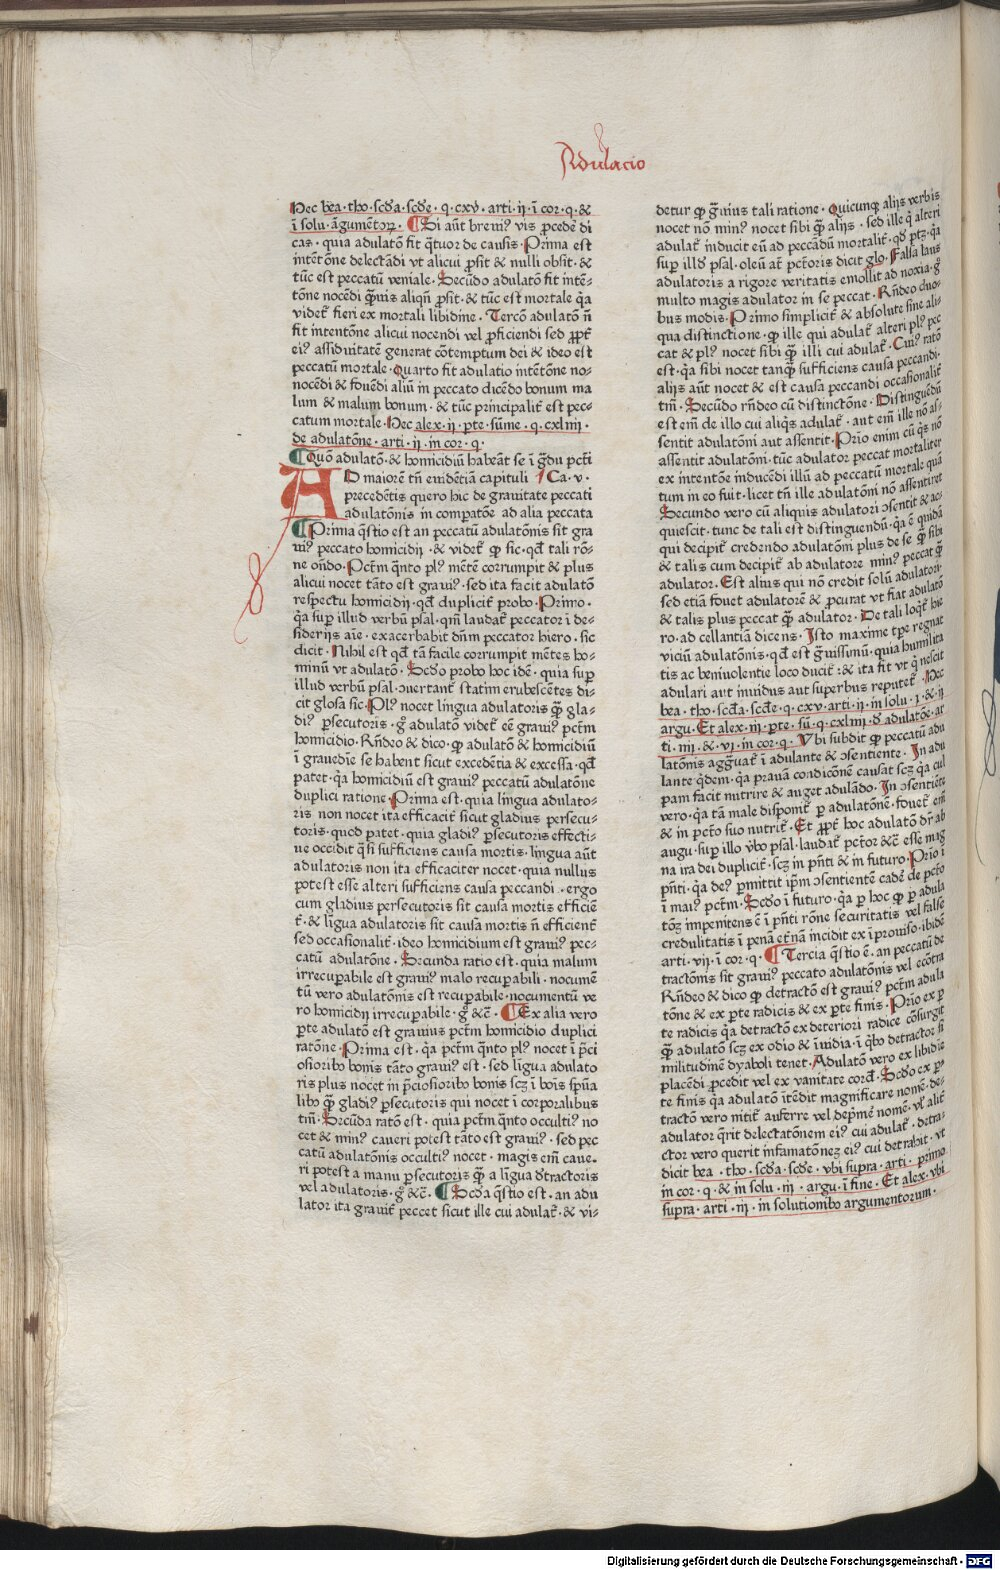 Adulacio
Hec bea· tho· scd̄a· scd̄e· q· cxv· arti· ij· ī cor· q· &
ī solu· āgumētorꝝ· ¶ Si aūt breuiꝰ vis ꝓcede di
cas· quia adulatō fit q̄tuor de causis· Prima est
intētōne delectādi vt alicui ꝓsit & nulli obsit· &
tūc est peccatū veniale· Secūdo adulatō fit intē⸗
tōne nocēdi q̄uis aliqn̄ ꝓsit· & tūc est mortale q̄a
videt̄ fieri ex mortali libidine· Tercō adulatō n̄
fit intentōne alicui nocendi vel ꝓficiendi sed ꝓpt̄
eiꝰ assiduitatē generat cōtemptum dei & ideo est
peccatū mortale· Quarto fit adulatio intētōne no⸗
nocēdi & fouēdi aliū in peccato dicēdo bonum ma
lum & malum bonum· & tūc principalit̄ est pec⸗
catum mortale· Hec alex· ij· pte· sūme· q· cxliij·
de adulatōne· arti· ij· in cor· q·
¶ Quō adulatō· & homicidiū habeāt se ī ḡdu pctī
AD maiorē tn̄ euidētiā capituli / Ca· v·
precedētis quero hic de grauitate peccati
adulatōnis in comparatōe ad alia peccata
¶ Prima q̄stio est an peccatū adulatōnis sit gra
uiꝰ peccato homicidij· & videt̄ ꝙ sic· qd̄ tali rō⸗
ne on̄do· Pctm̄ q̄nto plꝰ mētē corrumpit & plus
alicui nocet tāto est grauiꝰ· sed ita facit adulatō
respectu homicidij· qd̄ duplicit̄ probo· Primo·
q̄a sup illud verbū psal· qm̄ laudat̄ peccator ī de⸗
siderijs aīe· exacerbabit dūm peccator hiero· sic
dicit· Nihil est qd̄ tā facile corrumpit mētes ho⸗
minū vt adulatō· Scd̄o probo hoc idē· quia sup
illud verbū psal· ꝯuertant̄ statim erubescētes di⸗
cit glosa sic· Plꝰ nocet lingua adulatoris q̄ȝ gla⸗
diꝰ ꝑsecutoris· gͦ adulatō videt̄ eē grauiꝰ pctm̄
homicidio· Rn̄deo & dico· ꝙ adulatō & homicidiū
ī grauedīe se habent sicut excedētia & excessa· qd̄
patet· q̄a homicidiū est grauiꝰ peccatū adulatōne
duplici ratione· Prima est· quia lingua adulato⸗
ris non nocet ita efficacit̄ sicut gladius persecu⸗
toris· quod patet· quia gladiꝰ ꝑsecutoris effecti⸗
ue occidit q̄si sufficiens causa mortis· lingua aūt
adulatoris non ita efficaciter nocet· quia nullus
potest esse alteri sufficiens causa peccandi· ergo
cum gladius persecutoris sit causa mortis efficiē
t̄· & līgua adulatoris sit causa mortis n̄ efficient̄
sed occasionalit̄· ideo homicidium est grauiꝰ pec⸗
catū adulatōne· Secunda ratio est· quia malum
irrecuꝑabile est grauiꝰ malo recuꝑabili· nocumē
tū vero adulatōnis est recuꝑabile· nocumentū ve
ro homicidij irrecuꝑabile· gͦ &c̄· ¶ Ex alia vero
ꝑte adulatō est grauius pctm̄ homicidio duplici
ratōne· Prima est· q̄a pctm̄ q̄nto plꝰ nocet ī p̄ci
osioribꝰ bonis tāto grauiꝰ est· sed līgua adulato
ris plus nocet in p̄ciosioribꝰ bonis scȝ ī boīs spūa
libꝰ q̄ȝ gladiꝰ ꝑsecutoris qui nocet ī corporalibus
tm̄· Secūda ratō est· quia pctm̄ q̄nto occultiꝰ no
cet & minꝰ caueri potest tāto est grauiꝰ· sed pec
catū adulatōnis occultiꝰ nocet· magis em̄ caue⸗
ri potest a manu ꝑsecutoris q̄ȝ a līgua d̄tractoris
vel adulatoris· gͦ &c̄· ¶ Scd̄a q̄stio est· an adu
lator ita grauit̄ peccet sicut ille cui adulat̄· & vi⸗
detur ꝙ ḡuius tali ratione· Quicunqȝ alijs verbis
nocet nō minꝰ nocet sibi q̄ȝ alijs· sed ille q̄ alteri
adulat̄ inducit eū ad peccādū mortalit̄· qd̄ ptȝ· q̄a
sup illd̄ psal· oleū at̄ pctōris dicit glo· Falsa laus
adulatoris a rigore veritatis emollit ad noxia· gͦ
multo magis adulator in se peccat· Rn̄deo duo⸗
bus modis· Primo simplicit̄ & absolute sine ali⸗
qua distinctione· ꝙ ille qui adulat̄ alteri plꝰ pec
cat & plꝰ nocet sibi q̄ȝ illi cui adulat̄· Cuiꝰ ratō
est· q̄a sibi nocet tanqȝ sufficiens causa peccandi·
alijs aūt nocet & est causa peccandi occasionalit̄
tm̄· Secūdo rn̄deo cū distinctōne· Distinguēdū
est em̄ de illo cui aliqs adulat̄· aut em̄ ille nō as⸗
sentit adulatōni aut assentit· Prio enim cū q̄s nō
assentit adulatōni· tūc adulator peccat mortaliter
ex intentōe inducēdi illū ad peccatū mortale quā
tum in eo fuit· licet tn̄ ille adulatōni nō assentiret
Secundo vero cū aliquis adulatori ꝯsentit & ac⸗
quiescit· tunc de tali est distinguendū· q̄a ē quidā
qui decipit̄ credendo adulatōni plus de se q̄ȝ sibi
& talis cum decipit̄ ab adulatore minꝰ peccat q̄ȝ
adulator· Est alius qui nō credit solū adulatori·
sed etiā fouet adulatorē & ꝓcurat vt fiat adulatō
& talis plus peccat q̄ȝ adulator· De tali loqt̄ hie
ro· ad cellantiā dicens· Isto maxime tpe regnat
viciū adulatōnis· qd̄ est ḡuissimū· quia humilita
tis ac beniuolentie loco ducit̄· & ita fit vt q̄ nescit
adulari aut inuidus aut superbus reputet̄· Hec
bea· tho· scd̄a· scd̄e· q· cxv· arti· ij· in solu· j· & ij
argu· Et alex· iij· pte· sū· q· cxliij· d̄ adulatōe· ar
ti· iij· & vj· in cor· q· Vbi subdit ꝙ peccatū adu
latōnis agḡuat̄ ī adulante & ꝯsentiente· In adu
lante qdem· q̄a prauā condicōnē causat scȝ q̄a cul
pam facit nutrire & auget adulādo· In ꝯsentiēte
vero· q̄a tā male disponit̄ ꝑ adulatōnē· fouet̄ em̄
& in pctō suo nutrit̄· Et ꝓpt̄ hoc adulatō dr̄ ab
augu· sup illo ṽbo psal· laudat̄ pctōr &c̄ esse mag
na ira dei duplicit̄· scȝ in pn̄ti & in futuro· Prio ī
pn̄ti· q̄a deꝰ ꝑmittit ipm̄ ꝯsentientē cadē de pctō
ī maiꝰ pctm̄· Scd̄o ī futuro· q̄a ꝑ hoc ꝙ ꝑ adula
tōȝ impenitens ē ī pn̄ti rōne securitatis vel false
credulitatis ī penā et̄nā incidit ex īprouiso· ibidē
arti· vij· ī cor· q· ¶ Tercia q̄stio ē· an peccatū de
tractōnis sit grauiꝰ peccato adulatōnis vel ecōtra
Rn̄deo & dico ꝙ detractō est grauiꝰ pctm̄ adula
tōne & ex ꝑte radicis & ex ꝑte finis· Prio ex ꝑ
te radicis q̄a detractō ex deteriori radice cōsurgit
q̄ȝ adulatō scȝ ex odio & īuidia· ī qbꝰ detractor si
militudinē dyaboli tenet· Adulatō vero ex libidīe
placēdi ꝓcedit vel ex vanitate cord̄· Scd̄o ex ꝑ⸗
te finis q̄a adulatō itēdit magnificare nomē· de⸗
tractō vero nitit̄ auferre vel depmē nomē· vl̄ alit̄
adulator q̄rit delectatōnem eiꝰ cui adulat̄· detra⸗
ctor vero querit infamatōneȝ eiꝰ cui detrahit· vt
dicit bea· tho· scd̄a· scd̄e· vbi supra· arti· primo
in cor· q· & in solu· iij· argu· ī fine· Et alex· vbi
supra· arti· iij· in solutionibꝰ argumentorum·
Digitalisierung gefördert durch die Deutsche Forschungsgemeinschaft - DFG